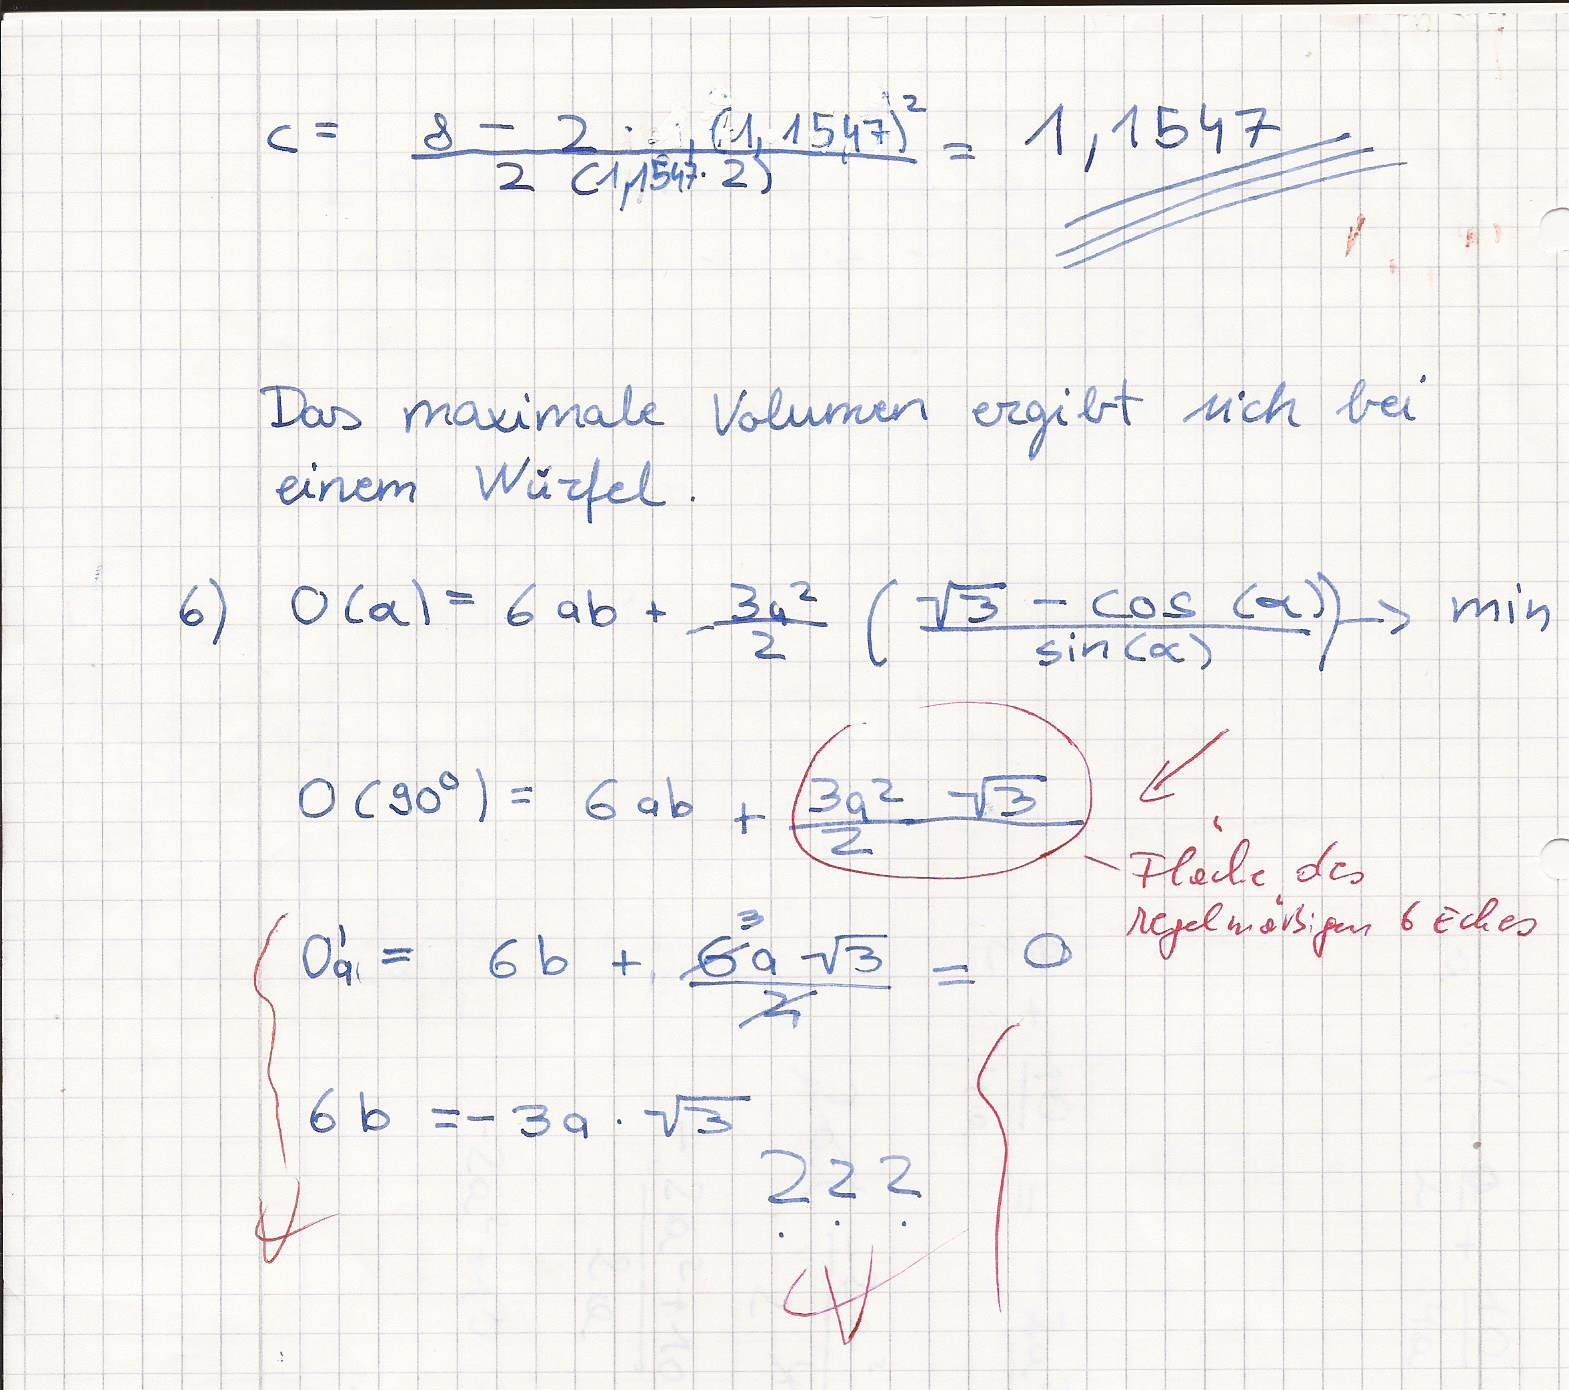 c = (8 - 2 · (1,1547)²) / (2 (1,1547 · 2)) = 1,1547
Das maximale Volumen ergibt sich bei
einem Würfel.
6) O(α) = 6ab + 3a²/2 ((√3 - cos(α)) / sin(α)) → min
O(90°) = 6ab + 3a² √3 / 2
Fläche des
regelmäßigen 6 Eckes
O'a = 6b + 6³a √3 / 2 = 0
6b = - 3a · √3
???